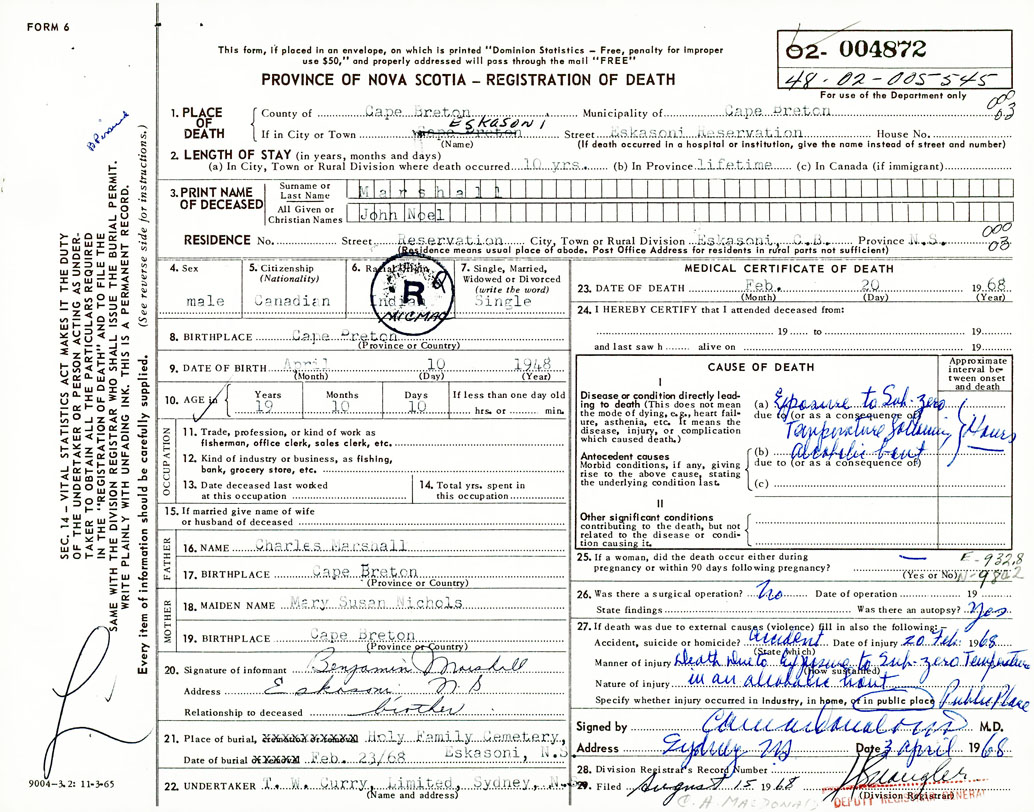 FORM 6
This form, if placed in an envelope, on which is printed "Dominion Statistics – Free, penalty for improper
use $50," and properly addressed will pass through the mail "FREE"
PROVINCE OF NOVA SCOTIA – REGISTRATION OF DEATH
02- 004872
48-02-005545
For use of the Department only
000
03
1. PLACE OF DEATH
County of Cape Breton Municipality of Cape Breton
ESKASONI
If in City or Town Cape Breton Street Eskasoni Reservation House No.
(Name) (If death occurred in a hospital or institution, give the name instead of street and number)
2. LENGTH OF STAY (in years, months and days)
(a) In City, Town or Rural Division where death occurred 10 yrs. (b) In Province lifetime (c) In Canada (if immigrant)
3. PRINT NAME OF DECEASED
Surname or Last Name Marshall
All Given or Christian Names John Noel
000
03
RESIDENCE No. Street Reservation City, Town or Rural Division Eskasoni, C.B. Province N.S.
(Residence means usual place of abode. Post Office Address for residents in rural parts not sufficient)
4. Sex
male
5. Citizenship
(Nationality)
Canadian
6. Racial Origin
Indian
R
MICMAC
7. Single, Married,
Widowed or Divorced
(write the word)
Single
8. BIRTHPLACE Cape Breton
(Province or Country)
9. DATE OF BIRTH April 10 1948
(Month) (Day) (Year)
10. AGE in
Years Months Days If less than one day old
19 10 10 hrs. or min.
OCCUPATION
11. Trade, profession, or kind of work as
fisherman, office clerk, sales clerk, etc.
12. Kind of industry or business, as fishing,
bank, grocery store, etc.
13. Date deceased last worked
at this occupation
14. Total yrs. spent in
this occupation
15. If married give name of wife
or husband of deceased
FATHER
16. NAME Charles Marshall
17. BIRTHPLACE Cape Breton
(Province or Country)
MOTHER
18. MAIDEN NAME Mary Susan Nichols
19. BIRTHPLACE Cape Breton
(Province or Country)
20. Signature of informant Benjamin Marshall
Address Eskasoni N.S
Relationship to deceased brother
21. Place of burial, Holy Family Cemetery,
Eskasoni, N.S.
Date of burial Feb. 23/68
22. UNDERTAKER T. W. Curry, Limited, Sydney, N.S.
(Name and address)
MEDICAL CERTIFICATE OF DEATH
23. DATE OF DEATH Feb. 20 1968
(Month) (Day) (Year)
24. I HEREBY CERTIFY that I attended deceased from:
19 to 19
and last saw h alive on 19
CAUSE OF DEATH
Approximate interval between onset and death
I
Disease or condition directly leading
to death (This does not mean
the mode of dying, e.g., heart failure,
asthenia, etc. It means the
disease, injury, or complication
which caused death.)
(a) Exposure to Sub-zero
due to (or as a consequence of)
Temperature following
Hours
Antecedent causes
Morbid conditions, if any, giving
rise to the above cause, stating
the underlying condition last.
(b) alcoholic bout
due to (or as a consequence of)
(c)
II
Other significant conditions
contributing to the death, but not
related to the disease or condition
causing it.
25. If a woman, did the death occur either during
pregnancy or within 90 days following pregnancy?
(Yes or No)
E-932.8
26. Was there a surgical operation? No Date of operation 19
State findings Was there an autopsy? Yes
27. If death was due to external causes (violence) fill in also the following:
Accident, suicide or homicide? accident Date of injury 20 Feb. 1968
(State which)
Manner of injury Death Due to Exposure to Sub-zero Temperature
(How sustained)
Nature of injury in an alcoholic bout
Specify whether injury occurred in Industry, in home, or in public place Public Place
Signed by M.D.
Address Sydney NS Date 3 April 1968
28. Division Registrar's Record Number
29. Filed August 15 1968
(Division Registrar)
DEPUTY REGISTRAR GENERAL
C. A. MACDONALD
SEC. 14 – VITAL STATISTICS ACT MAKES IT THE DUTY
OF THE UNDERTAKER OR PERSON ACTING AS UNDER-
TAKER TO OBTAIN ALL THE PARTICULARS REQUIRED
IN THE "REGISTRATION OF DEATH" AND TO FILE THE
SAME WITH THE DIVISION REGISTRAR WHO SHALL ISSUE THE BURIAL PERMIT.
WRITE PLAINLY WITH UNFADING INK. THIS IS A PERMANENT RECORD.
Every item of information should be carefully supplied. (See reverse side for instructions.)
9004-3.2: 11-3-65